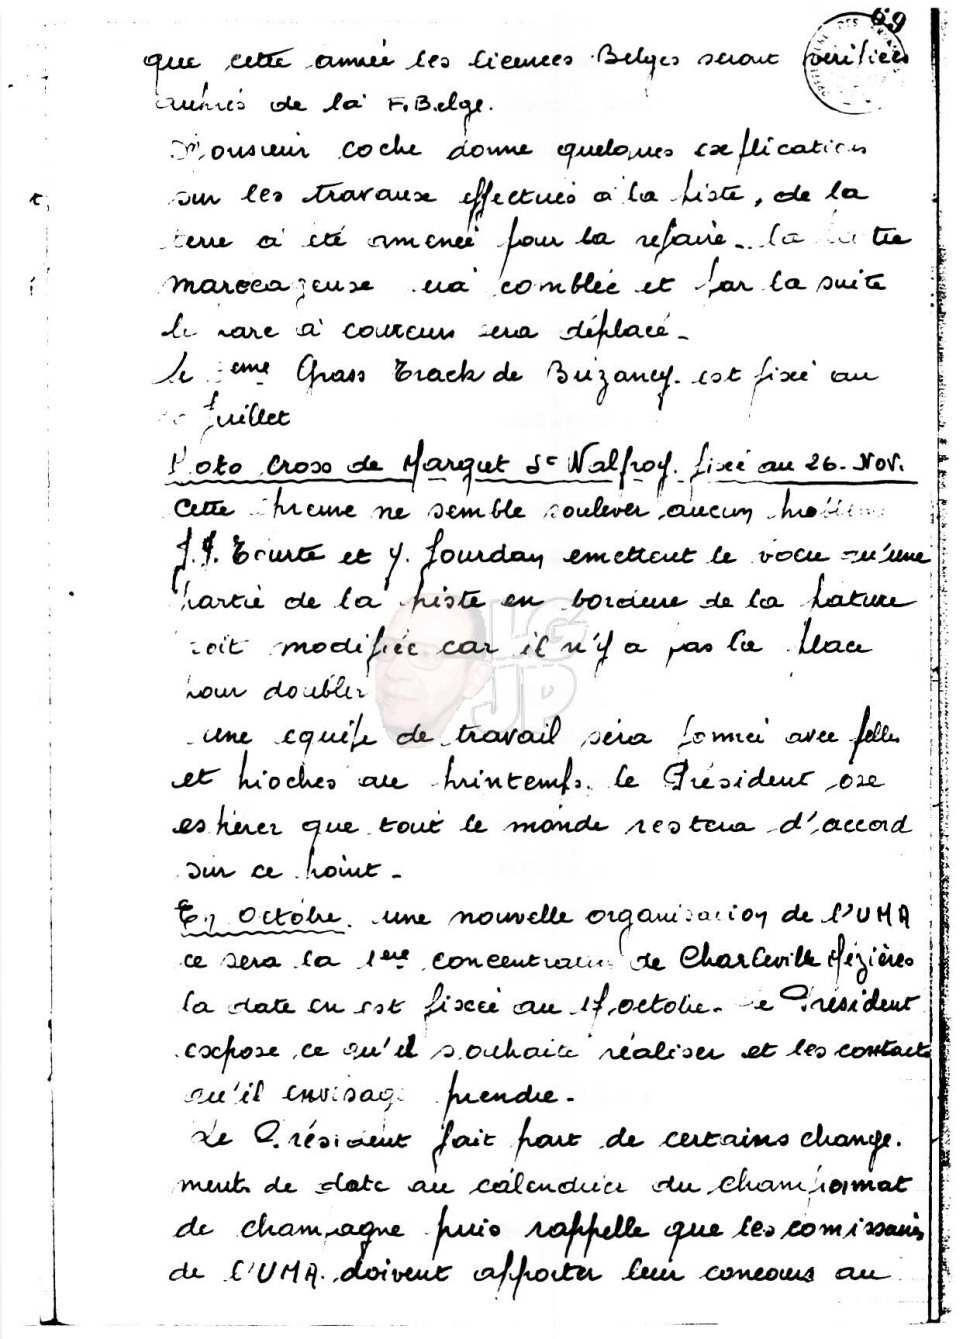 69
que cette année les licences Belges seront vérifiées
auprès de la F. Belge.
Monsieur Coche donne quelques explications
sur les travaux effectués à la piste, de la
terre a été amenée pour la refaire. la
marécageuse comblée et par la suite
le parc à coureurs sera déplacé -
le eme Grass Track de Buzancy est fixé au
Juillet
Moto Cross de Margut St Walfroy. fixé au 26. Nov.
Cette épreuve ne semble soulever aucun problème
J.J. Tourte et Y. Jourdan emettent le voeu qu'une
partie de la piste en bordure de la pature
soit modifiée car il n'y a pas la place
pour doubler
une equipe de travail sera formée avec pelles
et pioches au printemps. le Président ose
esperer que tout le monde restera d'accord
sur ce point -
En Octobre. une nouvelle organisation de l'UMA
ce sera la 1ere concentration de Charleville Mézières
la date en est fixée au 17 octobre. le Président
expose ce qu'il souhaite réaliser et les contacts
qu'il envisage prendre -
Le Président fait part de certains change.
ments de date au calendrier du championnat
de champagne puis rappelle que les comissaires
de l'UMA. doivent apporter leur concours au
LG
JP